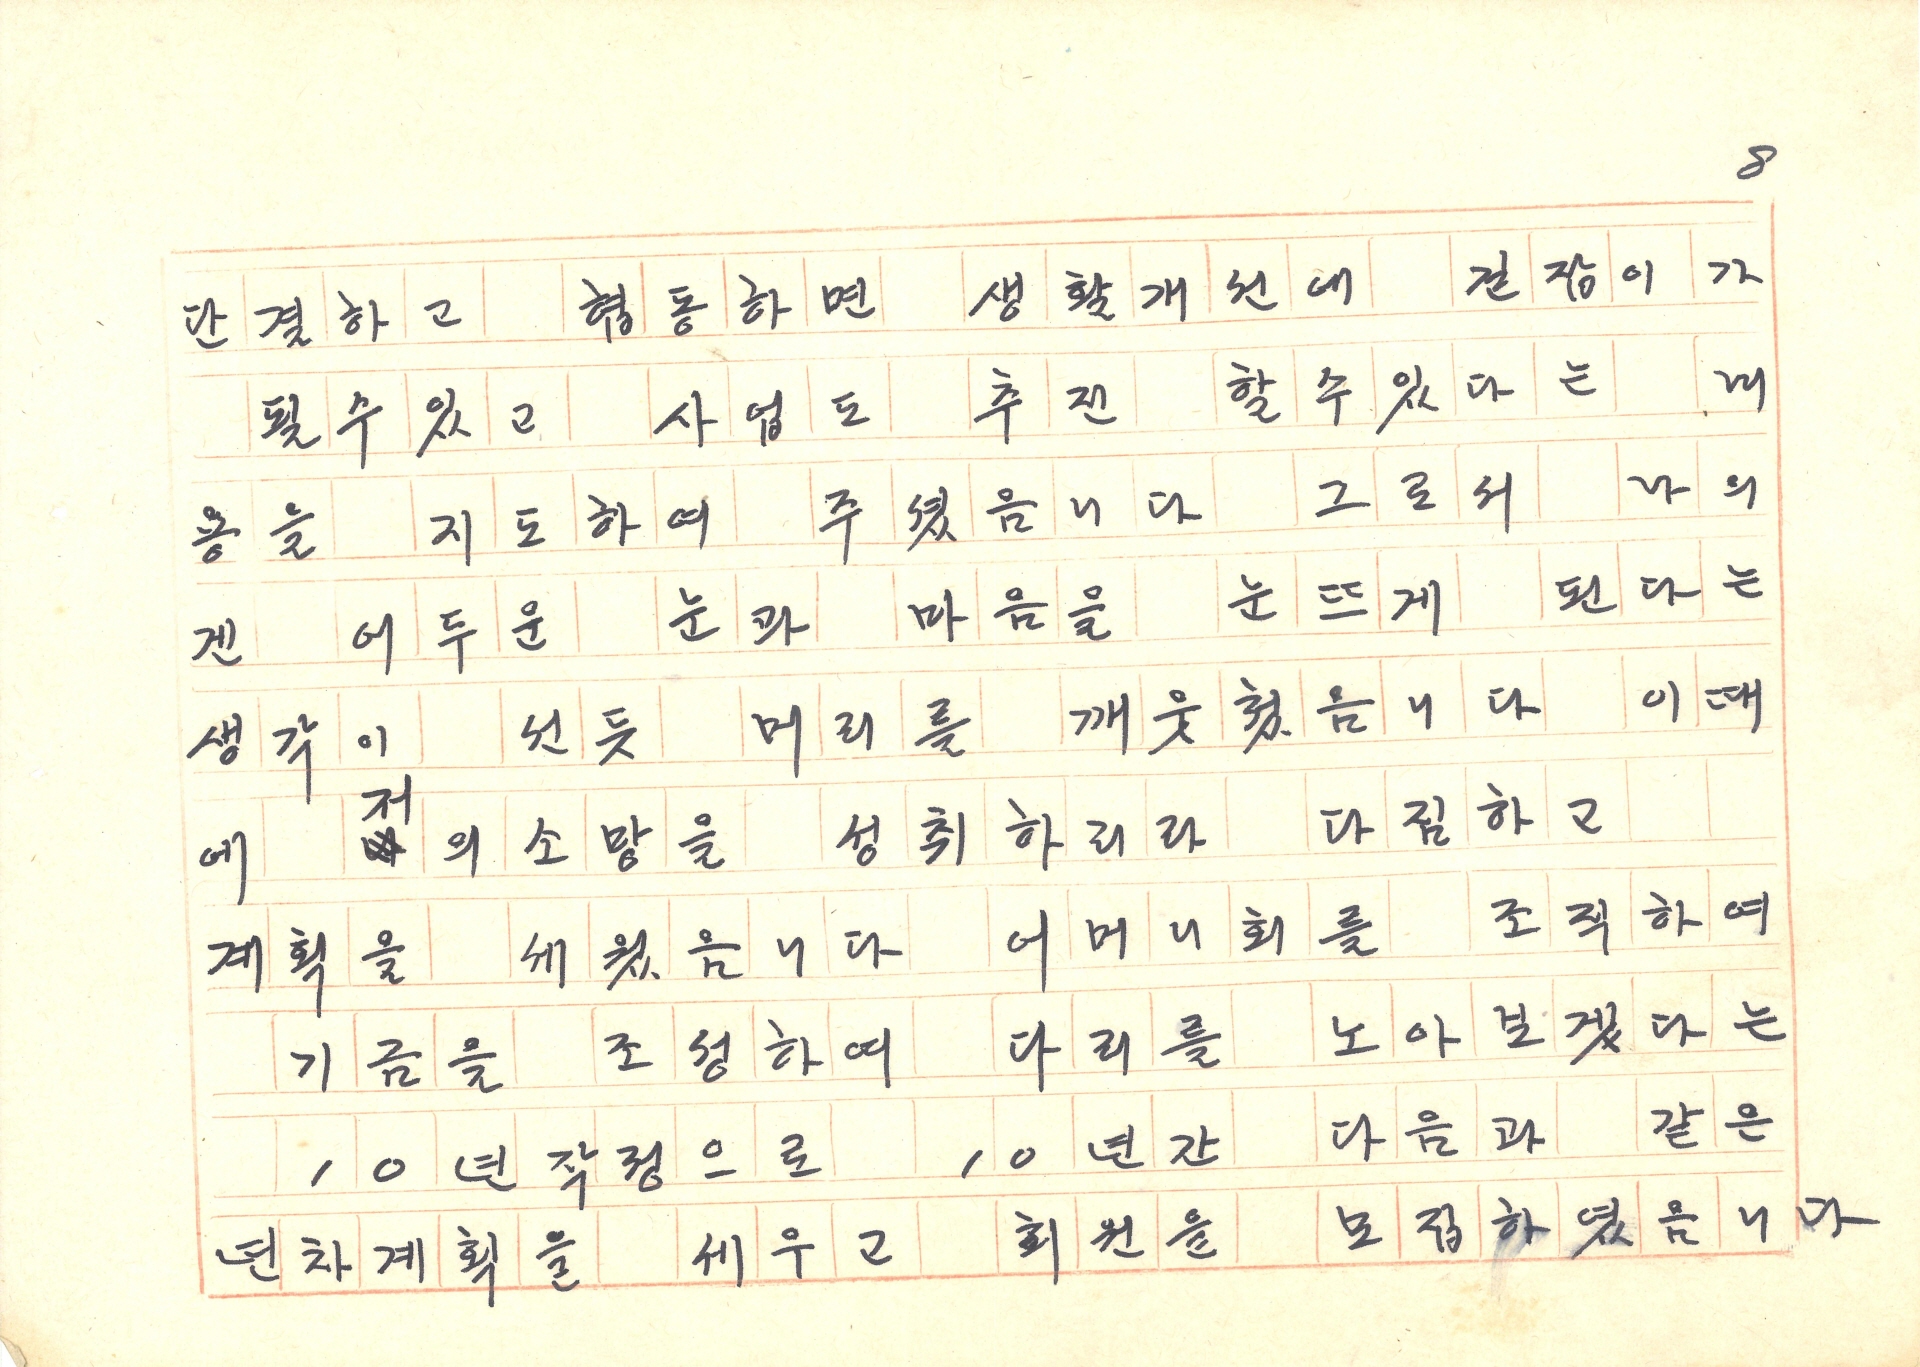 8
단결하고 협동하면 생활개선에 길잡이가
될수있고 사업도 추진 할수있다는 내
용을 지도하여 주셨음니다 그로서 나의
겐 어두운 눈과 마음을 눈뜨게 된다는
생각이 선듯 머리를 깨웃쳤음니다 이때
에 저의소망을 성취하리라 다짐하고
계획을 세웠음니다 어머니회를 조직하여
기금을 조성하여 다리를 노아보겠다는
10년작정으로 10년간 다음과 같은
년차계획을 세우고 회원을 모집하였음니다